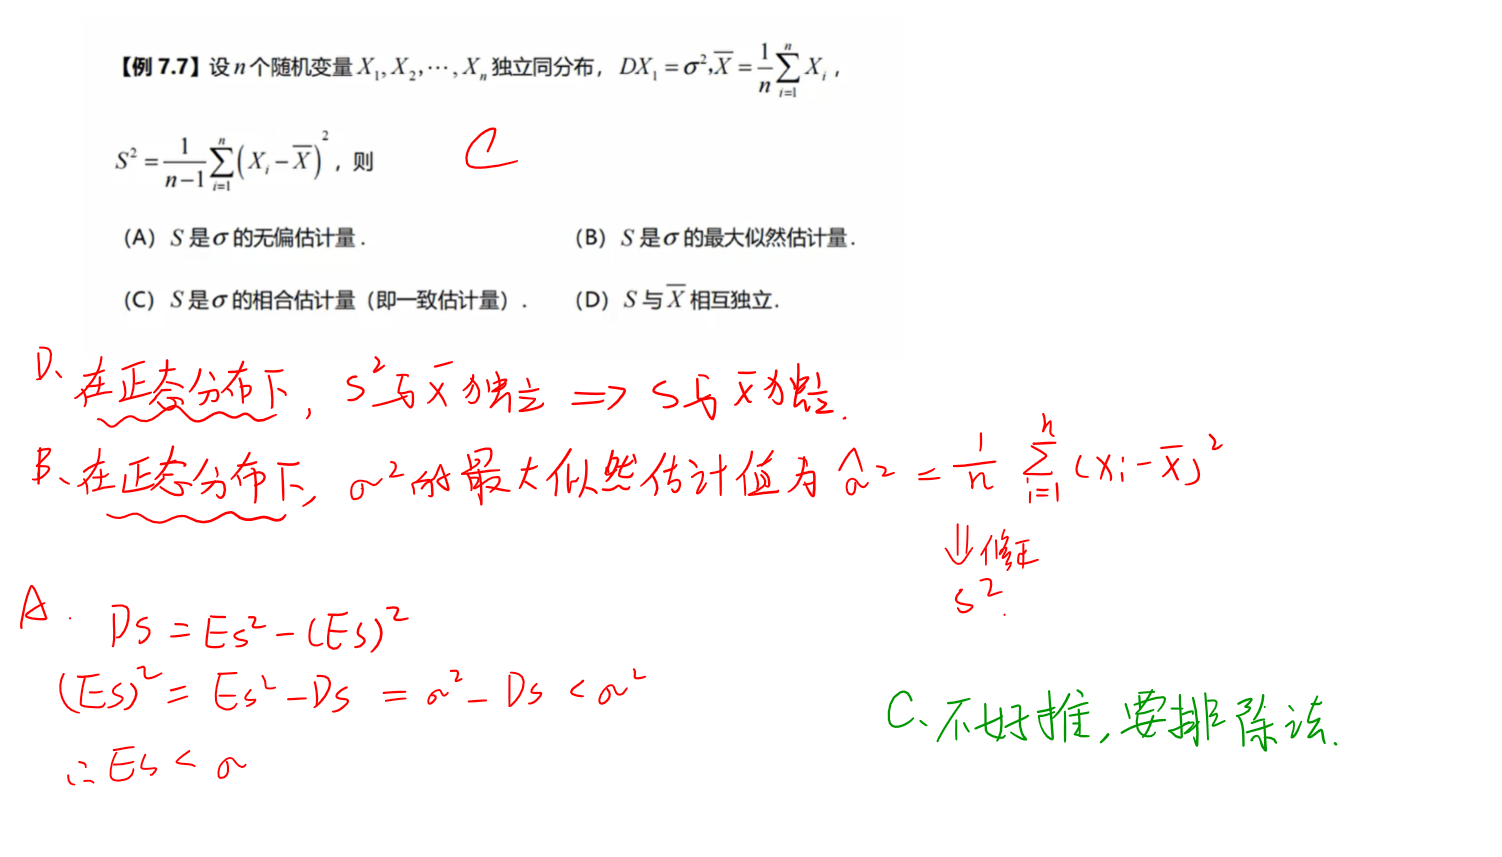 【例 7.7】设 n 个随机变量 X₁, X₂, ⋯, Xₙ 独立同分布, DX₁ = σ², X̄ = 1/n ∑ᵢ₌₁ⁿ Xᵢ,
S² = 1/(n−1) ∑ᵢ₌₁ⁿ (Xᵢ − X̄)², 则 C
(A) S 是 σ 的无偏估计量. (B) S 是 σ 的最大似然估计量.
(C) S 是 σ 的相合估计量(即一致估计量). (D) S 与 X̄ 相互独立.
D、在正态分布下, S²与X̄独立 ⇒ S与X̄独立.
B、在正态分布下, σ²的最大似然估计值为 σ̂² = 1/n ∑ᵢ₌₁ⁿ (Xᵢ − X̄)²
⇓修正
S².
A. DS = ES² − (ES)²
(ES)² = ES² − DS = σ² − DS < σ²
∴ ES < σ
C、不好推, 要排除法.